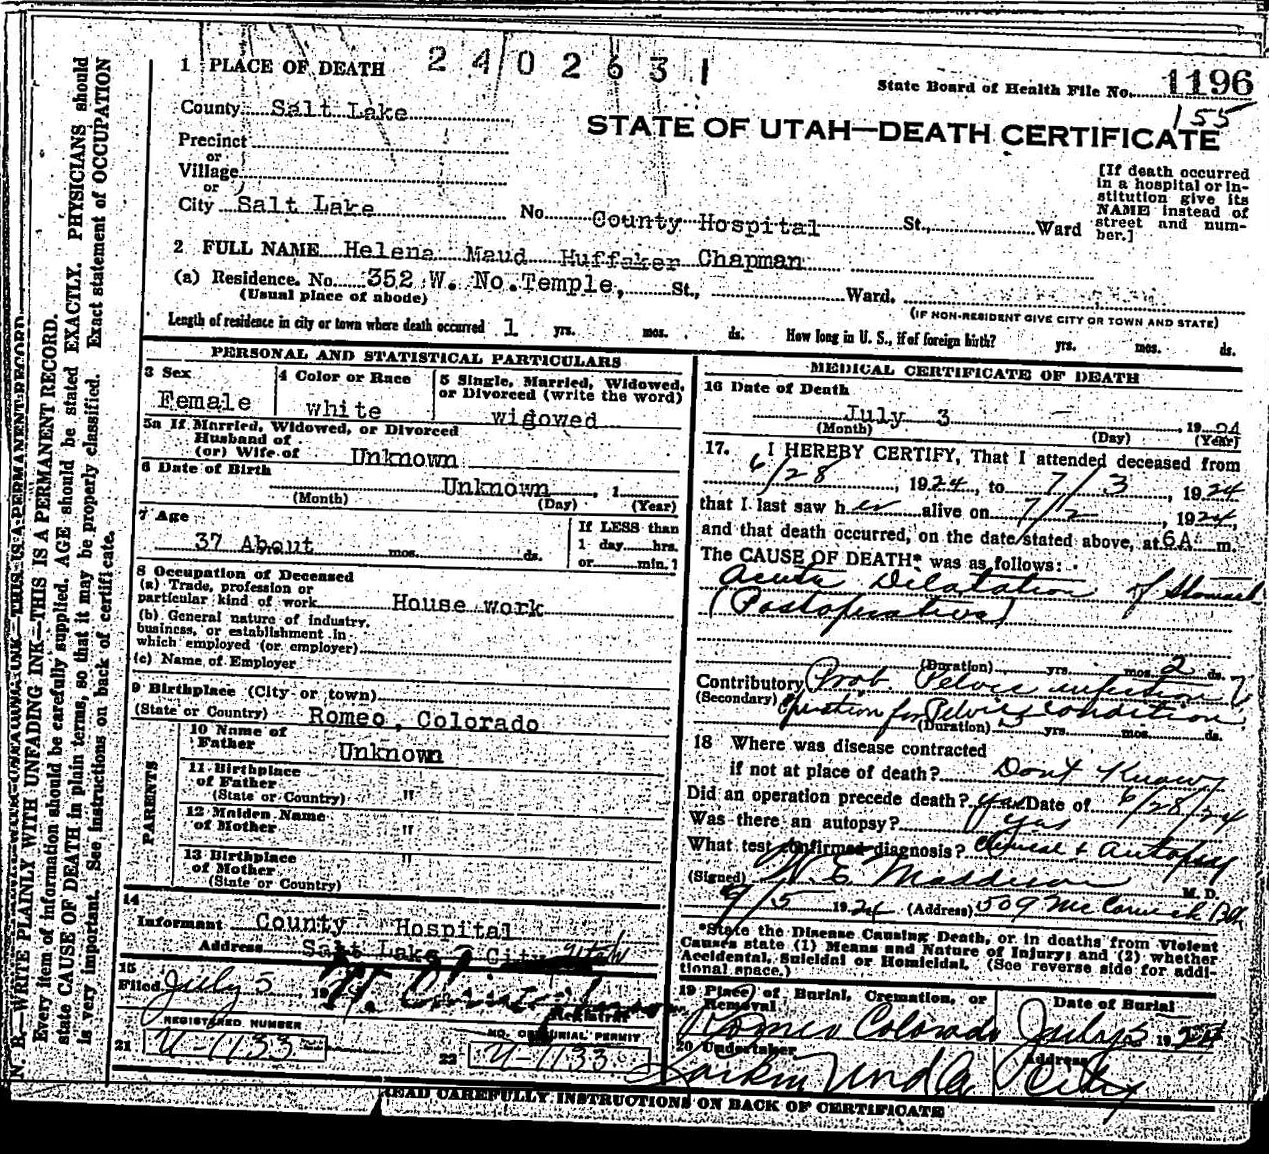 1 PLACE OF DEATH
2402631
State Board of Health File No. 1196
155
County Salt Lake
STATE OF UTAH—DEATH CERTIFICATE
Precinct
or
Village
or
City Salt Lake No. County Hospital St., Ward
[If death occurred
in a hospital or in-
stitution give its
NAME instead of
street and num-
ber.]
2 FULL NAME Helena Maud Huffaker Chapman
(a) Residence. No. 352 W. No. Temple, St., Ward.
(Usual place of abode)
(IF NON-RESIDENT GIVE CITY OR TOWN AND STATE)
Length of residence in city or town where death occurred 1 yrs. mos. ds. How long in U. S., if of foreign birth? yrs. mos. ds.
PERSONAL AND STATISTICAL PARTICULARS
3 Sex
Female
4 Color or Race
white
5 Single, Married, Widowed,
or Divorced (write the word)
widowed
5a If Married, Widowed, or Divorced
Husband of
(or) Wife of Unknown
6 Date of Birth
Unknown, 1
(Month) (Day) (Year)
7 Age
37 About mos. ds.
If LESS than
1 day hrs.
or min.?
8 Occupation of Deceased
(a) Trade, profession or
particular kind of work House work
(b) General nature of industry,
business, or establishment in
which employed (or employer)
(c) Name of Employer
9 Birthplace (City or town)
(State or Country) Romeo, Colorado
PARENTS
10 Name of
Father Unknown
11 Birthplace
of Father "
(State or Country)
12 Maiden Name
of Mother "
13 Birthplace "
of Mother
(State or Country)
14
Informant County Hospital
Address Salt Lake City Utah
15
Filed July 5, 19
Registrar
REGISTERED NUMBER
21 U-1133
NO. OF BURIAL PERMIT
22 U-1133
MEDICAL CERTIFICATE OF DEATH
16 Date of Death
July 3, 1924
(Month) (Day) (Year)
17. I HEREBY CERTIFY, That I attended deceased from
6/28, 1924, to 7/3, 1924
that I last saw her alive on 7/2, 1924,
and that death occurred, on the date stated above, at 6A m.
The CAUSE OF DEATH* was as follows:
Acute Dilatation of Stomach
(Postoperative)
(Duration) yrs. mos. 2 ds.
Contributory Prob. Pelvic infection
(Secondary) Operation for Pelvic condition
(Duration) yrs. mos. ds.
18 Where was disease contracted
if not at place of death? Dont Know
Did an operation precede death? yes Date of 6/28/24
Was there an autopsy? yes
What test confirmed diagnosis? Clinical & Autopsy
(Signed) W. E. Maddison M. D.
7/5 1924 (Address) 509 McCormick Bld
*State the Disease Causing Death, or in deaths from Violent
Causes state (1) Means and Nature of Injury; and (2) whether
Accidental, Suicidal or Homicidal. (See reverse side for addi-
tional space.)
19 Place of Burial, Cremation, or
Removal
Romeo Colorado
Date of Burial
July 5 1924
20 Undertaker
Larkin Und Co
Address
City
READ CAREFULLY INSTRUCTIONS ON BACK OF CERTIFICATE
N. B.—WRITE PLAINLY WITH UNFADING INK—THIS IS A PERMANENT RECORD.
Every item of information should be carefully supplied. AGE should be stated EXACTLY. PHYSICIANS should
state CAUSE OF DEATH in plain terms, so that it may be properly classified. Exact statement of OCCUPATION
is very important. See instructions on back of certificate.